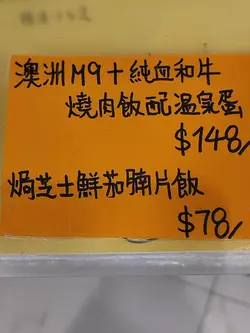 澳洲M9+純血和牛
燒肉飯配温泉蛋
$148/
焗芝士鮮茄腩片飯
$78/